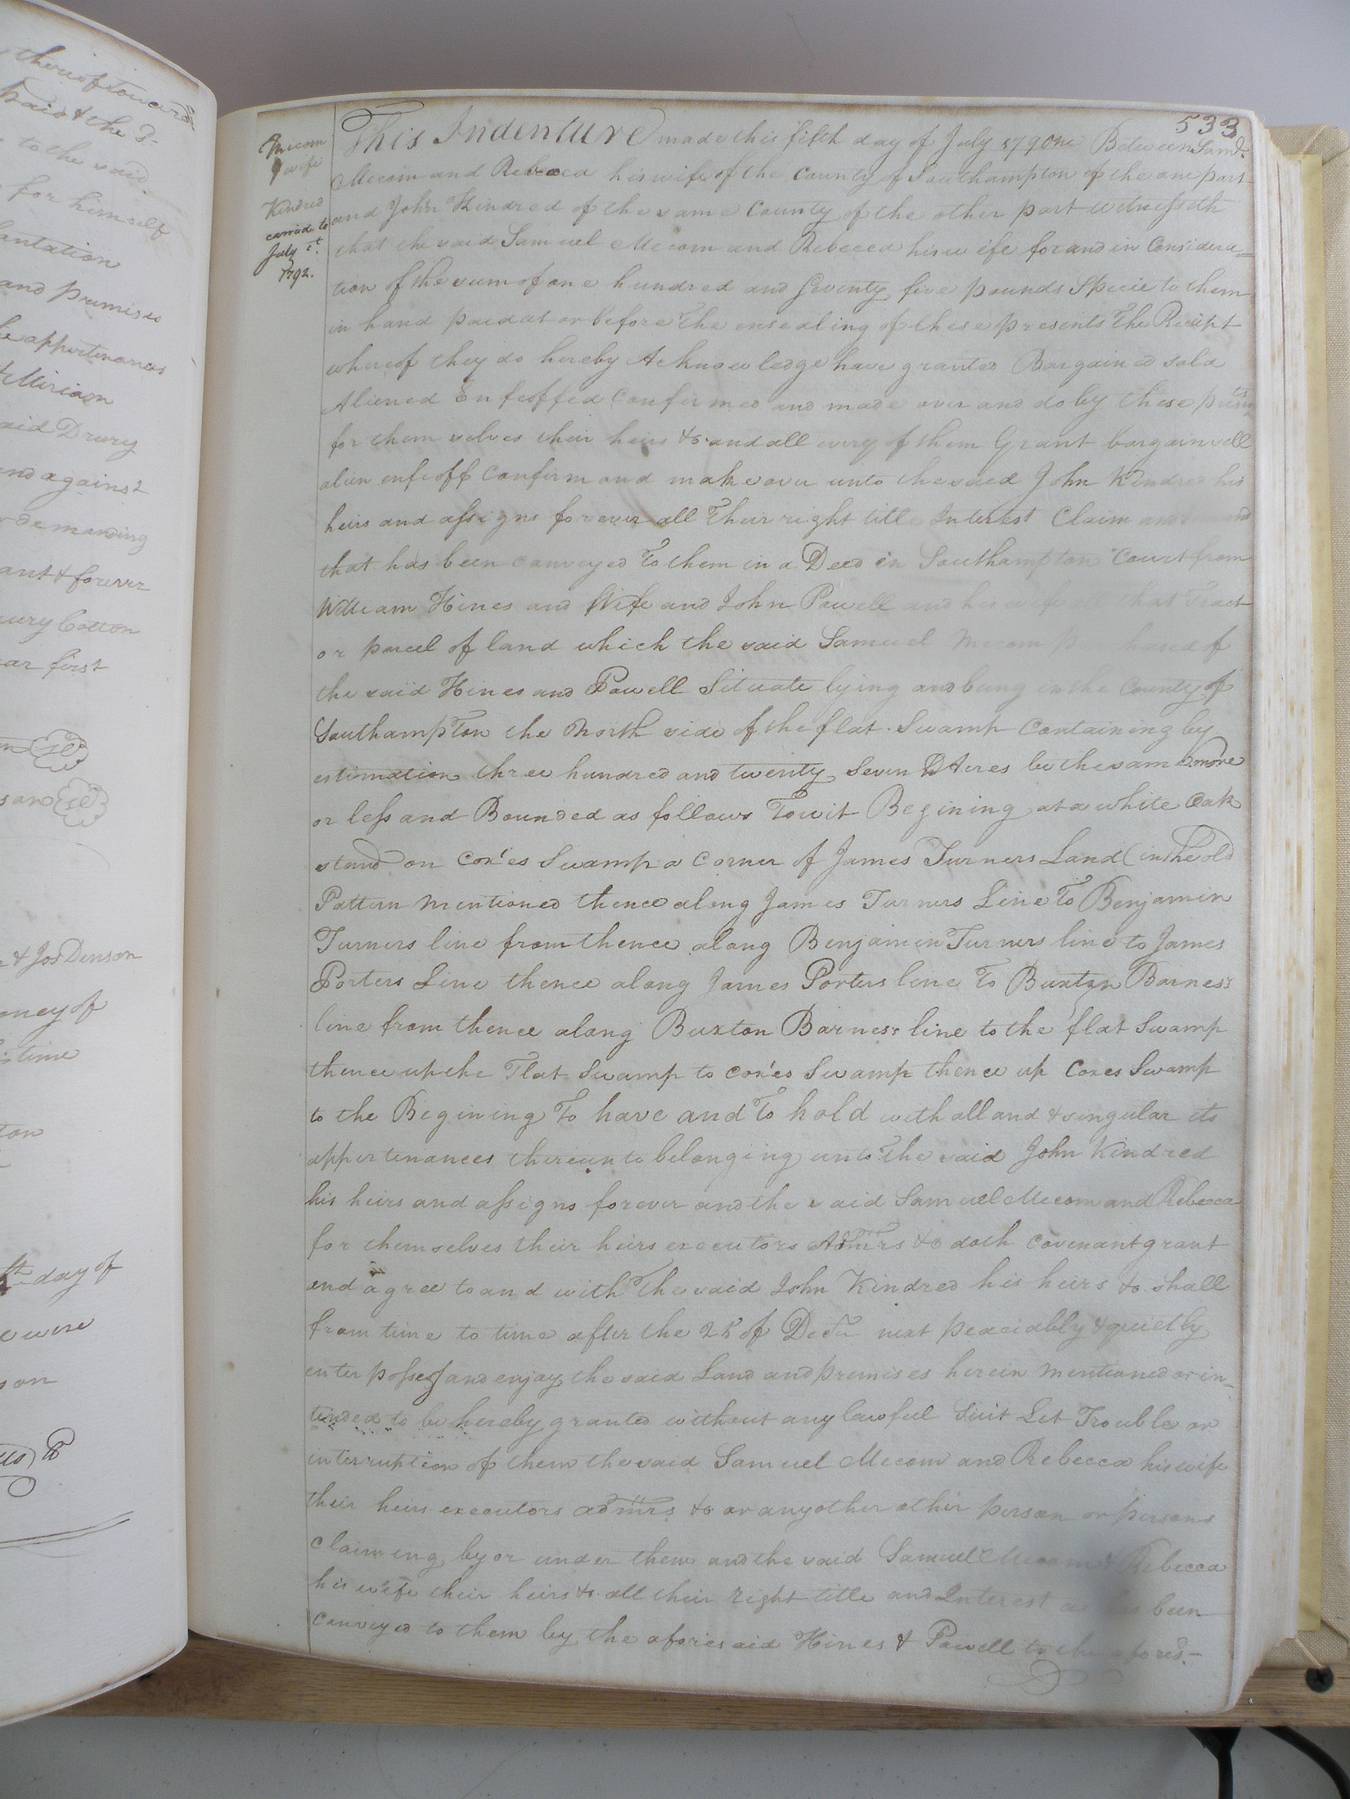 thereof Tou
paid & the
to the said
for himself
lantation
and premises
appertenances
& Miriam
aid Drury
and against
demanding
ant & forever
ury Cotton
ar first
& Jos Denson
oney of
time
ton
th day of
were
son
533
Mecom
& wife
Kindred
exam'd to
July
1792.
This Indenture made this fifth day of July 1790 Between Saml.
Mecom and Rebecca his wife of the County of Southampton of the one part
and John Kindred of the same County of the other part Witnesseth
that the said Samuel Mecom and Rebecca his wife for and in Considera=
tion of the sum of one hundred and Seventy five pounds Specie to them
in hand paid at or before the ensealing of these presents the Receipt
whereof they do hereby Acknowledge have granted Bargained sold
Aliened Enfeoffed Confirmed and made over and do by these prsts
for them selves their heirs &c and all every of them Grant bargain sell
alien enfeoff Confirm and make over unto the said John Kindred his
heirs and assigns forever all Their right title Interest Claim and
that has been conveyed To them in a Deed in Southampton Court from
William Hines and Wife and John Powell and his wife all that Tract
or parcel of land which the said Samuel Mecom of
the said Hines and Powell Situate lying and being in the County of
Southampton the North side of the flat Swamp Containing by
estimation three hundred and twenty Seven Acres be the same more
or less and Bounded as follows Towit Begining at a white Oak
stand on Cox'es Swamp a Corner of James Turners Land (in the old
Pattern mentioned thence along James Turners Line To Benjamin
Turners line from thence along Benjamin Turners line to James
Porters Line thence along James Porters line To Buxton Barnes's
line from thence along Buxton Barnes's line to the flat Swamp
thence up the Flat Swamp to Cox'es Swamp thence up Coxes Swamp
to the Begining To have and To hold with all and & singular its
appertenances thereunto belonging unto the said John Kindred
his heirs and assigns forever and the said Samuel Mecom and Rebecca
for themselves their heirs executors Admrs &c doth Covenant grant
and agree to and with The said John Kindred his heirs &c shall
from time to time after the 25 of Decr next peaciably & quietly
enter possess and enjoy the said Land and premises herein mentioned or in-
tended to be hereby granted without any lawful Suit Let Trouble or
interruption of them the said Samuel Mecom and Rebecca his wife
their heirs executors admrs &c or any other other person or persons
claiming by or under them and the said Samuel Mecom & Rebecca
his wife their heirs &c all their right title and Interest as has been
Conveyed to them by the aforesaid Hines & Powell to the afores-